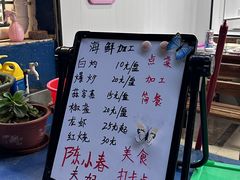 海鲜加工
白灼 10元/盘
爆炒 20元/盘
蒜蓉蒸 15元/盘
椒盐 20元/盘
龙虾 25元起
红烧 30元
点菜
加工
简餐
陈小春
美食
打卡点